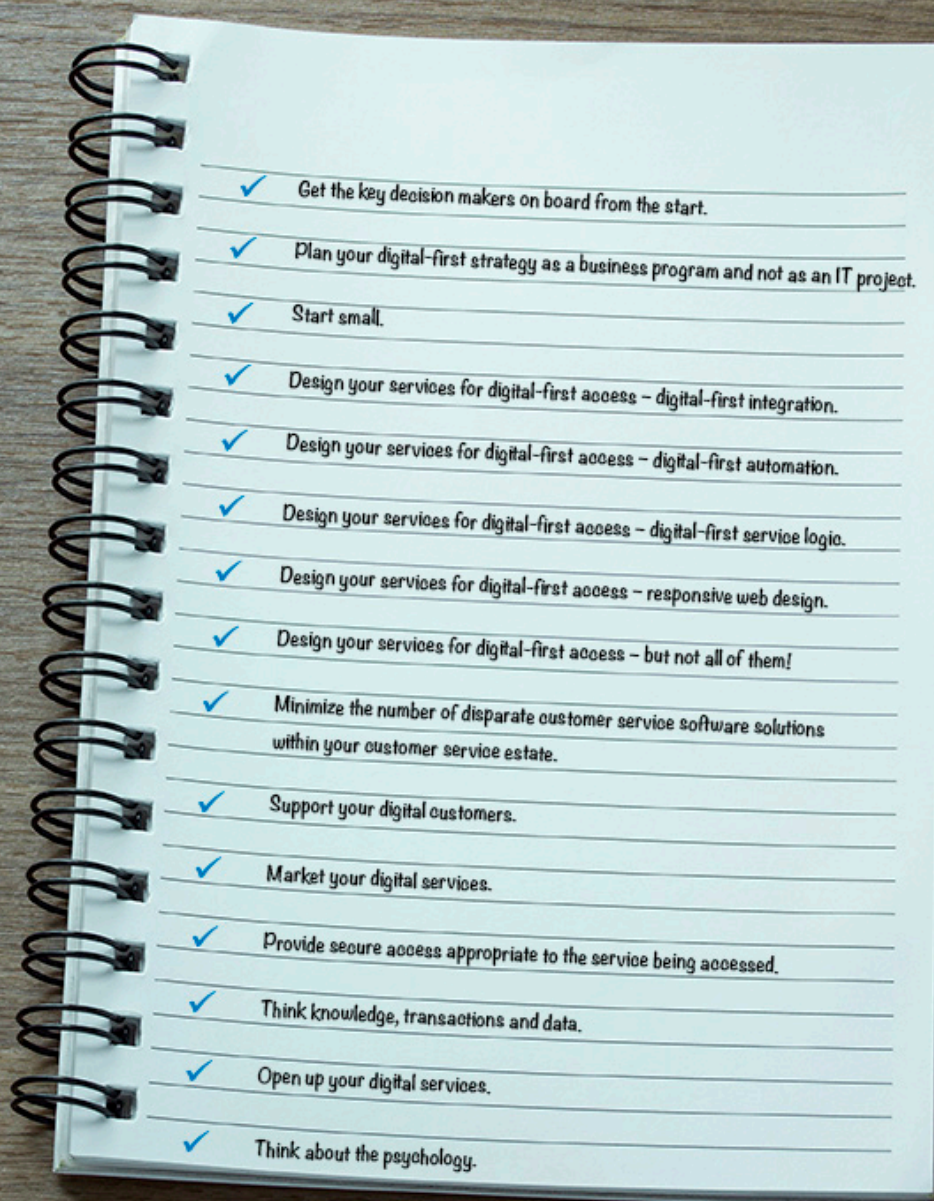 ✓ Get the key decision makers on board from the start.
✓ Plan your digital-first strategy as a business program and not as an IT project.
✓ Start small.
✓ Design your services for digital-first access – digital-first integration.
✓ Design your services for digital-first access – digital-first automation.
✓ Design your services for digital-first access – digital-first service logic.
✓ Design your services for digital-first access – responsive web design.
✓ Design your services for digital-first access – but not all of them!
✓ Minimize the number of disparate customer service software solutions
within your customer service estate.
✓ Support your digital customers.
✓ Market your digital services.
✓ Provide secure access appropriate to the service being accessed.
✓ Think knowledge, transactions and data.
✓ Open up your digital services.
✓ Think about the psychology.